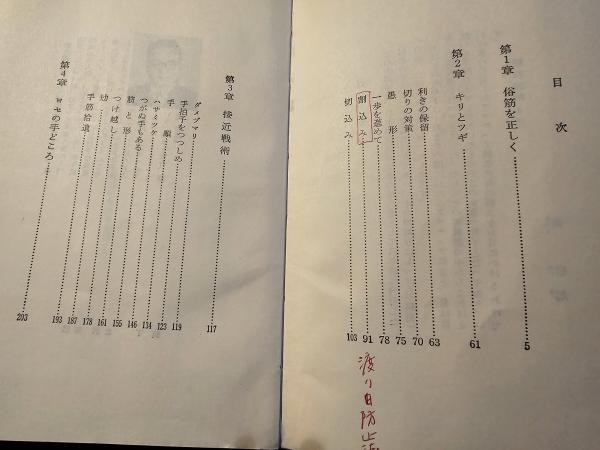 目次
第1章 俗筋を正しく 5
第2章 キリとツギ 61
利きの保留 63
切りの対策 70
愚形 75
一歩を進めて 78
割込み 91
切込み 103
渡り日防止法
第3章 接近戦術 117
ダメヅマリ 119
手拍子をつつしめ 123
手順 134
ハサミツケ 146
つがぬ手もある 155
筋と形 161
つけ越し 178
劫 187
手筋拾遺 193
第4章 ヨセの手どころ 203